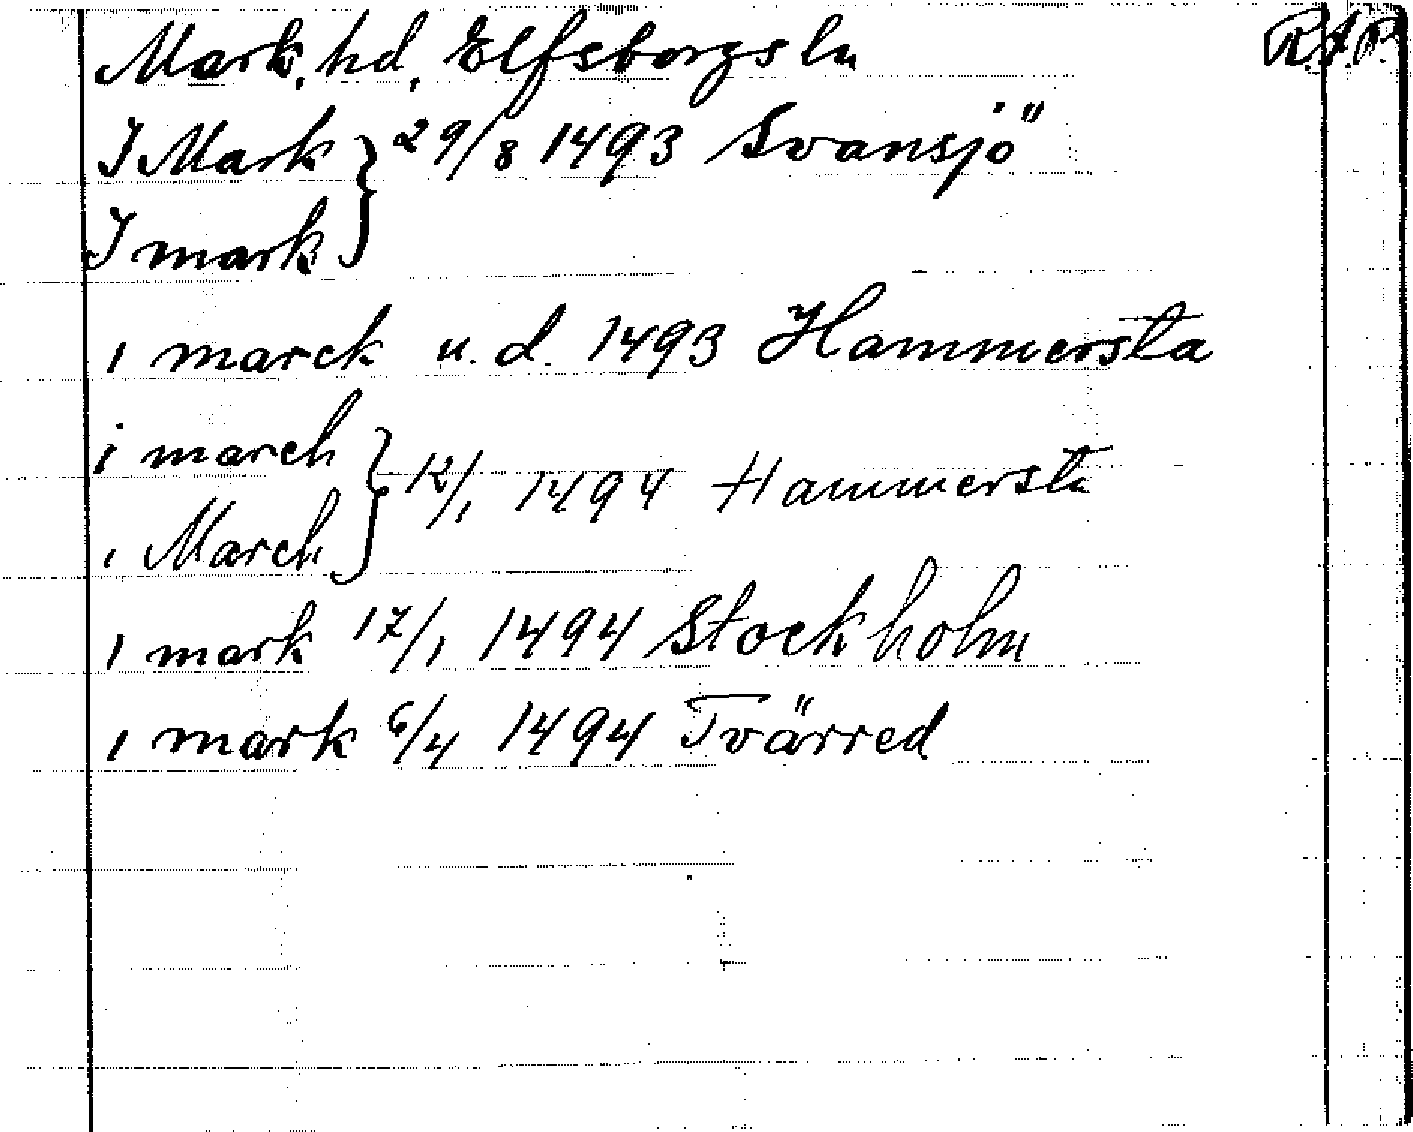 Mark, hd, Elfsborgs ln R.A.P.
I Mark } 29/8 1493 Svansjö
I mark
i marck u. d. 1493 Hammersta
i march } 12/1 1494 Hammersta
i March
i mark 17/1 1494 Stockholm
i mark 6/4 1494 Tvärred